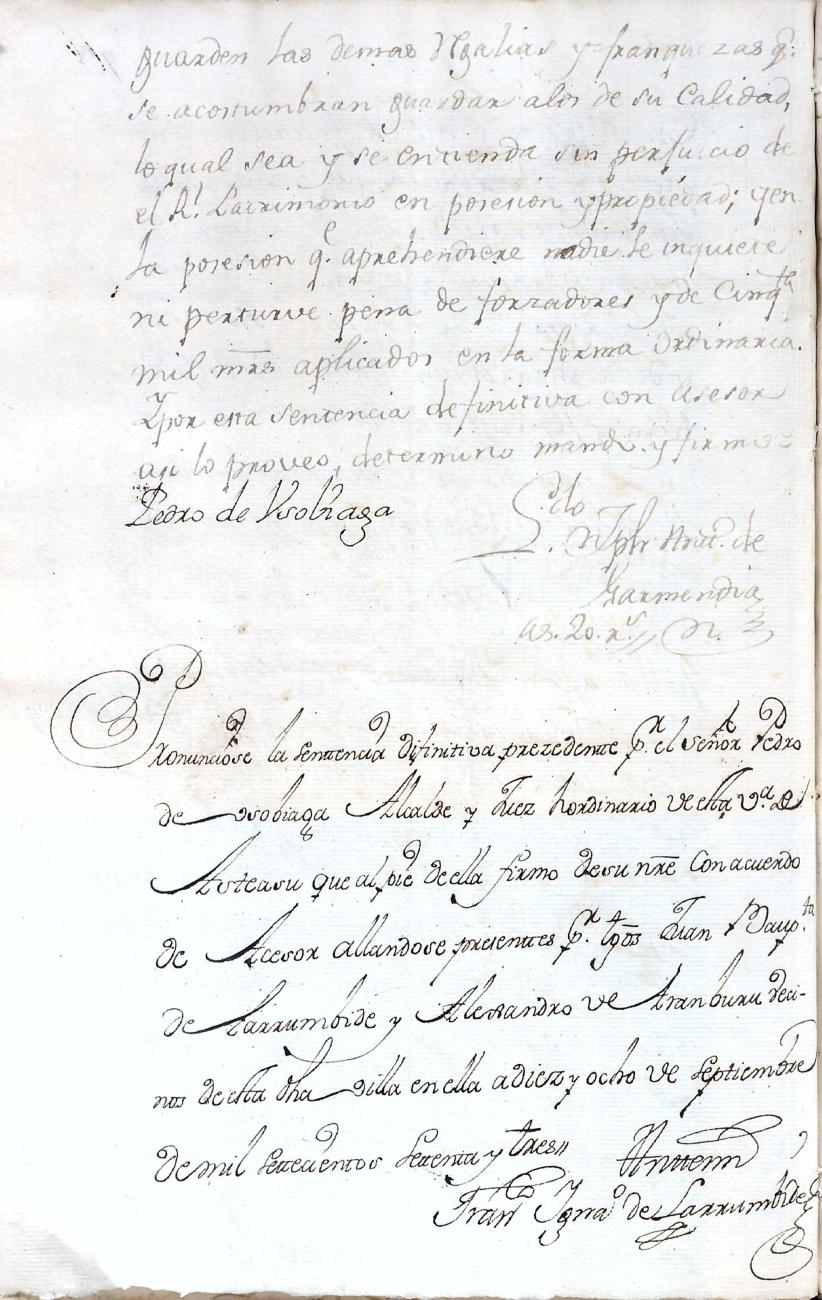 guarden las demas Rgalias y franquezas q.e
se acostumbran guardar alos de su Calidad,
lo qual sea y se entienda sin perjuicio de
el R.l Patrimonio en posesion y propiedad; y en
la posesion q.e aprehendiere nadie le inquiete
ni perturve pena de forzadores y de Cinq.ta
mil mrs aplicados en la forma Ordinaria.
Y por esta sentencia definitiva con Asesor
asi lo proveo, determino mando y firmo=
Pedro de Vsobiaga
L.cdo D.n Jph Ant.o de
Garmendia
as. 20. r.s
Pronunciose la senttencia difinitiva prezedentte p.r el señor Pedro
de vsobiaga Alcalde y Juez hordinario de esta v.a de
Asteasu que al pie de ella firmo de su nre Con acuerdo
de Acesor allandose presenttes p.r tgos Juan Baup.ta
de Larrumbide y Alessandro de Aranburu veci-
nos de esta dha villa en ella a diez y ocho de septiembre
de mil settecientos settenta y tres// Anttemi
Fran.co Ygna.o de Larrumbide